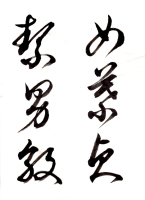 女慕貞
絜男效